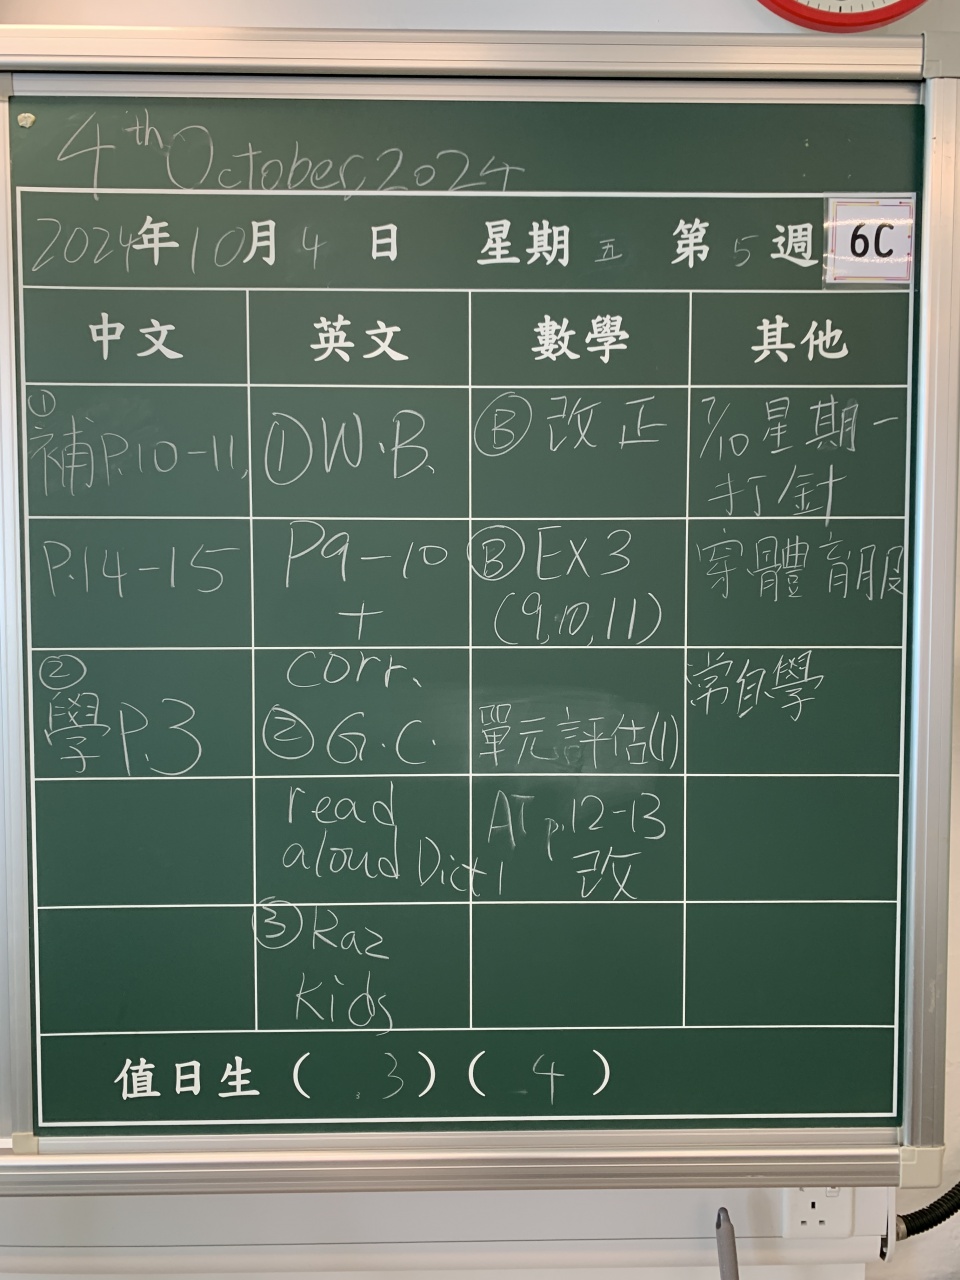 4th October, 2024
2024年10月4日 星期五 第5週 6C
中文 英文 數學 其他
①
補P.10-11,
P.14-15
②
學P.3
①W.B.
P9-10
+
corr.
②G.C.
read
aloud Dict1
③Raz
Kids
Ⓑ改正
ⒷEX3
(9,10,11)
單元評估(1)
AT p.12-13
改
7/10星期一
打針
穿體育服
常自學
值日生( 3)( 4 )